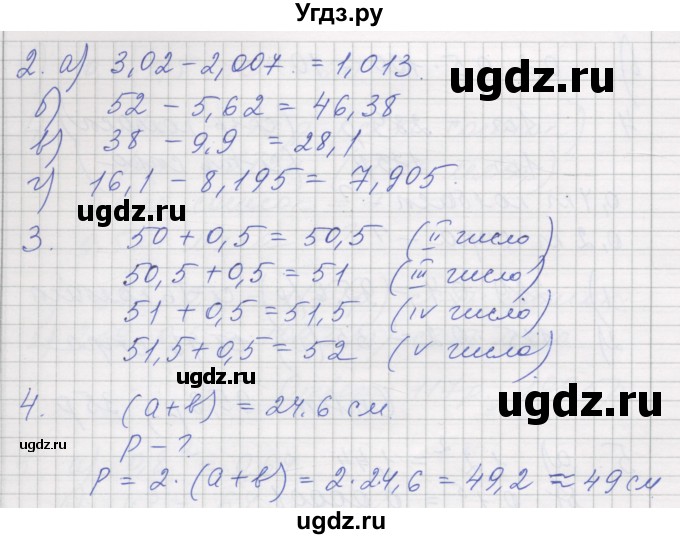 Угдз.ру
2. а) 3,02 - 2,007 = 1,013.
б) 52 - 5,62 = 46,38
в) 38 - 9,9 = 28,1
г) 16,1 - 8,195 = 7,905.
3. 50 + 0,5 = 50,5 (II число)
50,5 + 0,5 = 51 (III число)
51 + 0,5 = 51,5 (IV число)
51,5 + 0,5 = 52 (V число).
4. (a+b) = 24.6 см.
P - ?
P = 2 · (a+b) = 2 · 24,6 = 49,2 ≈ 49 см
ugdz.ru
ugdz.ru
ugdz.ru
ugdz.ru
ugdz.ru
ugdz.ru
ugdz.ru